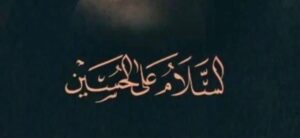 السَّلَامُ عَلَى الحُسَيْن